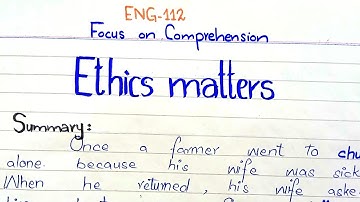 ENG-112
Focus on Comprehension
Ethics matters
Summary:
Once a farmer went to
alone. because his wife was sick
When he returned, his wife aske